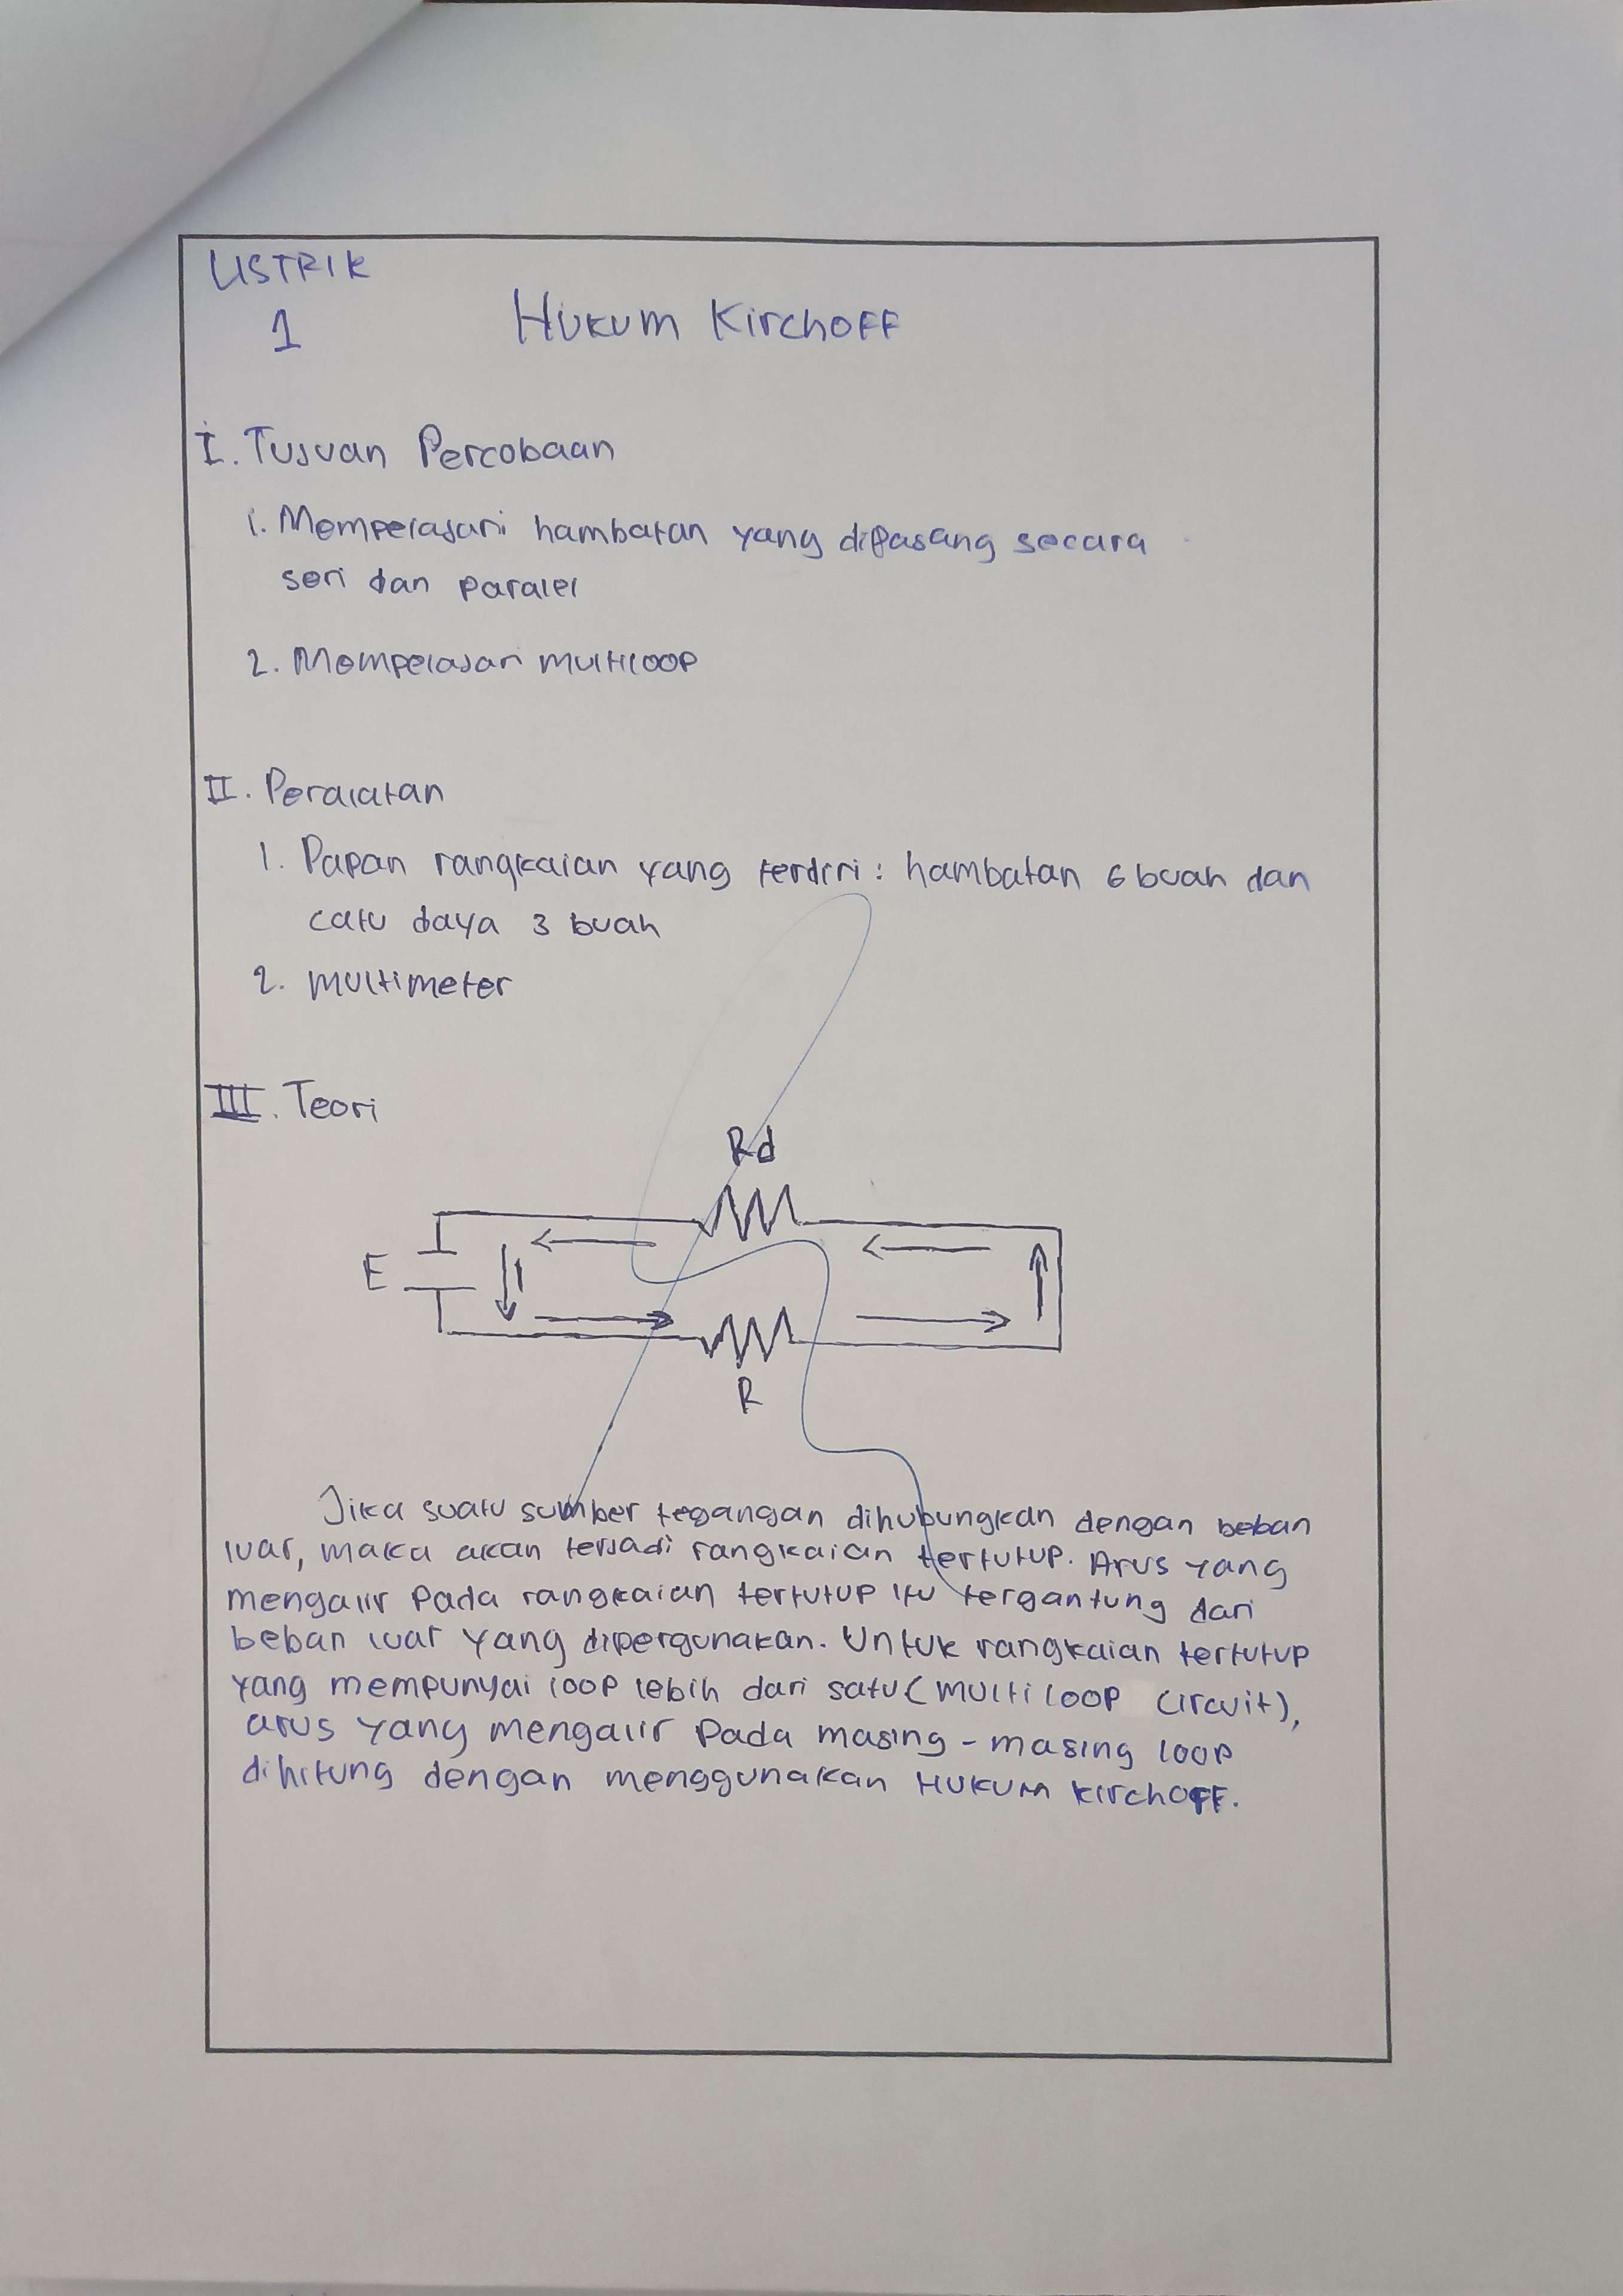 LISTRIK
1
Hukum Kirchoff
I. Tujuan Percobaan
1. Mempelajari hambatan yang dipasang secara
seri dan paralel
2. Mempelajari multiloop
II. Peralatan
1. Papan rangkaian yang terdiri : hambatan 6 buah dan
catu daya 3 buah
2. Multimeter
III. Teori
Rd
E
I
R
Jika suatu sumber tegangan dihubungkan dengan beban
luar, maka akan terjadi rangkaian tertutup. Arus yang
mengalir pada rangkaian tertutup itu tergantung dari
beban luar yang dipergunakan. Untuk rangkaian tertutup
yang mempunyai loop lebih dari satu (multi loop circuit),
arus yang mengalir pada masing - masing loop
dihitung dengan menggunakan Hukum Kirchoff.